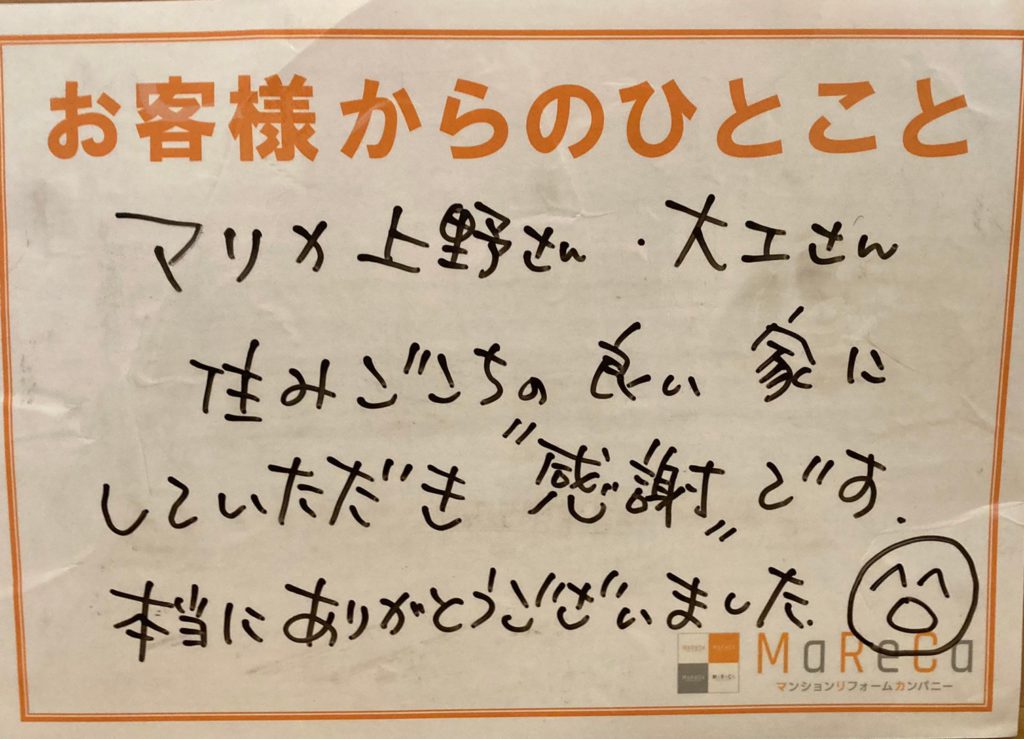 お客様からのひとこと
マリカ上野さん・大工さん
住みごこちの良い家に
していただき〝感謝〟です.
本当にありがとうございました.
MaReCa
マンションリフォームカンパニー